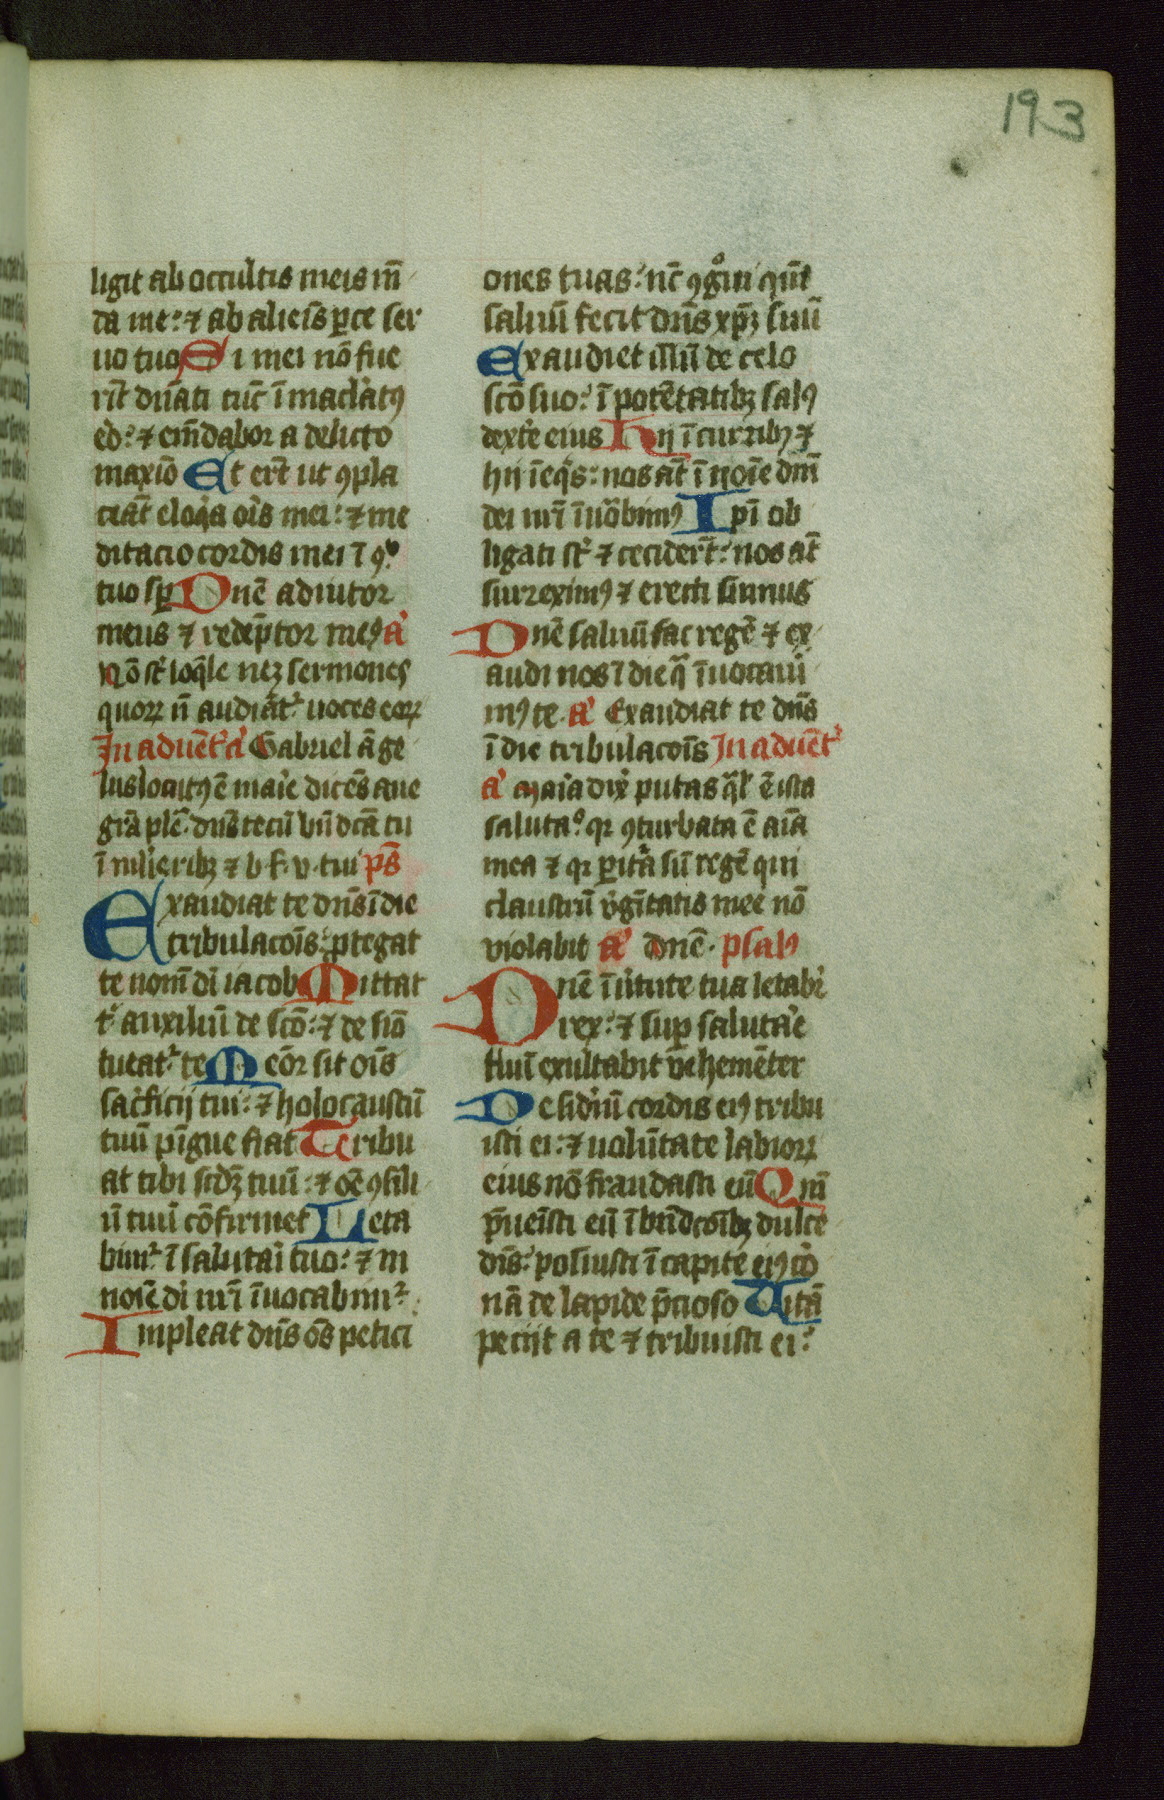 193
ligit ab occultis meis mū
da me: ⁊ ab alieīs ꝑce ser
uo tuo Si mei nō fue
rīt dn̄ati tūc īmaclatꝰ
eō: ⁊ em̄dabor a delicto
maxīo Et ert̄ ut ꝯpla
ceāt eloq̄a oīs mei: ⁊ me
ditacio cordis mei ī ꝯ
tuo sꝑ Dn̄e adiutor
meus ⁊ redēptor meꝰ a̓
Nō st̄ loq̄le neꝫ sermones
quoꝝ n̄ audiāt᷑ uoces eoꝝ
In aduēt᷑ a̓ Gabriel āge
lus locutꝰ ē marie dicēs aue
gr̄a plē. dn̄s tecū bn̄dc̄a tu
ī mlieribꝫ ⁊ b. f. v. tui ps̄
Exaudiat te dn̄s ī die
tribulacoīs: ꝓtegat
te nom̄ di̓ iacob Mittat
t᷑ auxiliū de sc̄o: ⁊ de siō
tueat᷑ te Meōr sit oīs
sac̓ficij tui: ⁊ holocaustū
tuū pīgue fiat Teribu
at tibi scd̄ꝫ tuū: ⁊ oē ꝯsili
ū tuū cōfirmet Leta
bim᷑ ī salutai tuo: ⁊ in
noīe di̓ nr̄i īuocabim᷑
Impleat dn̄s os̄ petici
ones tuas: nc̄ ꝯgͦui qm̄
saluū fecit dn̄s xp̄ꝫ suū
Exaudiet illū de celo
sc̄o suo: ī potētatibꝫ salꝰ
dext̓e eius Hij ī curribꝫ ⁊
hij ī eq̓s: nos āt ī noīe dn̄i
dei nr̄i īuōbimꝰ Ip̄i ob
ligati st̄ ⁊ cecidert̄: nos āt
surreximꝰ ⁊ erecti sumus
Dn̄e saluū fac regē ⁊ ex
audi nos ī die q̄ īuocaui
mꝰ te. a̓ Exaudiat te dn̄s
ī die tribulacoīs In aduēt᷑
a̓ maria dix̓ putas q̄l̓ ē ista
salutaͦ. qꝛ ꝯturbata ē aīa
mea ⁊ qꝛ ꝑit̓a sū regē qui
claustrū v̓gītatis mee nō
violabit a̓ dn̄e. psalꝰ
Dn̄e ī v̓tute tua letabi̓
rex: ⁊ suꝑ saluta̓e
tuū exultabit vehemēter
Desid̓iū cordis eiꝰ tribu
isti ei: ⁊ uolūtate labioꝝ
eius nō fraudasti eū Qm̄
p̄ueīsti eū ī bn̄dcoībꝫ dulce
dīs: posuisti ī capite eiꝰ co̓
nā de lapide p̄cioso Uitā
petijt a te ⁊ tribuisti ei: